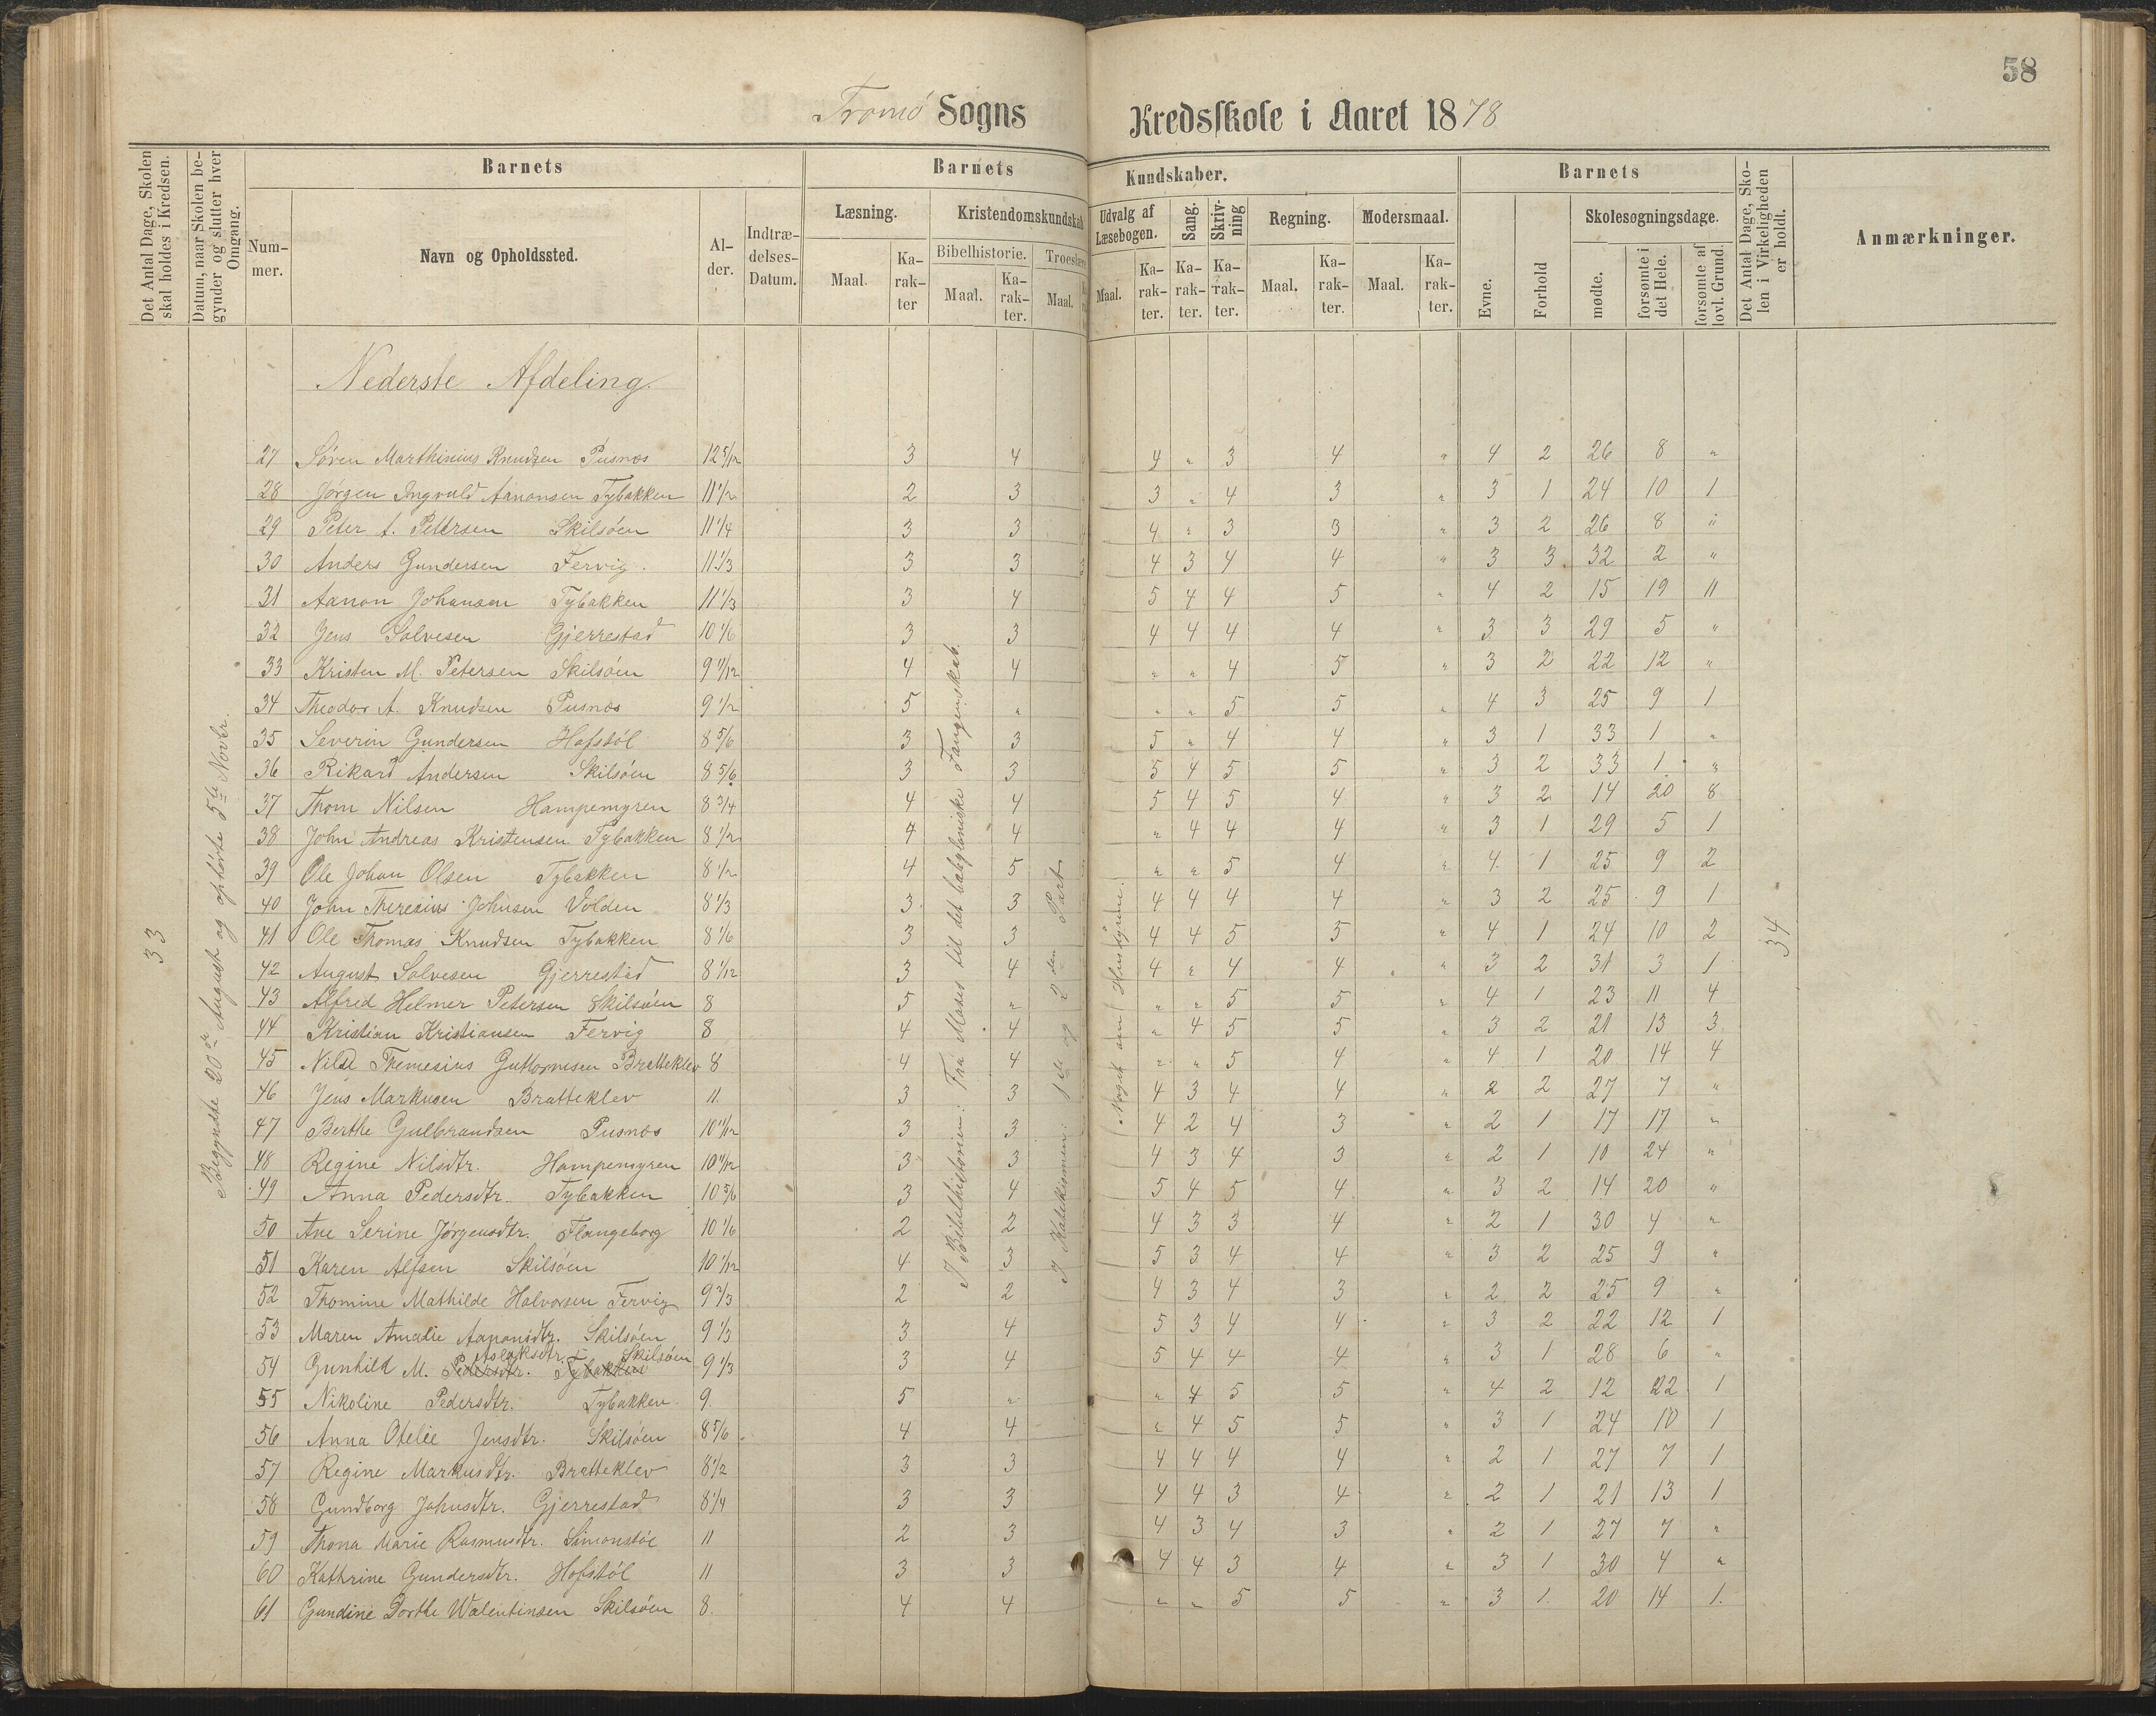 58
Tromø Sogns Kredsskole i Aaret 1878
Det Antal Dage, Skolen skal holdes i Kredsen.
Datum, naar Skolen begynder og slutter hver Omgang.
Barnets
Barnets Kundskaber.
Barnets
Det Antal Dage, Skolen i Virkeligheden er holdt.
Anmærkninger.
Nummer.
Navn og Opholdssted.
Alder.
Indtrædelses-Datum.
Læsning.
Kristendomskundskab
Udvalg af Læsebogen.
Sang.
Skrivning
Regning.
Modersmaal.
Evne.
Forhold
Skolesøgningsdage.
Bibelhistorie.
Troeslære
Maal.
Karakter
Maal.
Karakter.
Maal.
Maal.
Karakter.
Karakter.
Karakter.
Maal.
Karakter.
Maal.
Karakter.
mødte.
forsømte i det Hele.
forsømte af lovl. Grund.
Nederste Afdeling.
33
Begyndte 20de August og ophørte 5te Novbr.
I Bibelhistorien: Fra Moses til det babyloniske Fangenskab.
I Katekismen: 1ste og 2den Part
34
27 Søren Marthinius Knudsen Pusnæs 12 5/12 3 4 4 " 3 4 " 4 2 26 8 "
28 Jørgen Ingvald Aanonsen Tybakken 11 1/2 2 3 3 " 4 3 " 3 1 24 10 1
29 Peter A. Petersen Skilsøen 11 1/4 3 3 4 " 3 3 " 3 2 26 8 "
30 Anders Gundersen Fervig. 11 1/3 3 3 4 3 4 4 " 3 3 32 2 "
31 Aanon Johansen Tybakken 11 1/3 3 4 5 4 4 5 " 4 2 15 19 11
32 Jens Solvesen Gjerrestad 10 1/6 3 3 4 4 4 4 " 3 3 29 5 "
33 Kristen M. Petersen Skilsøen 9 11/12 4 4 " " 4 5 " 3 2 22 12 "
34 Theodor A. Knudsen Pusnæs 9 1/2 5 " " " 5 5 " 4 3 25 9 1
35 Severin Gundersen Hofstøl 8 5/6 3 3 5 " 4 4 " 3 1 33 1 "
36 Rikard Andersen Skilsøen 8 5/6 3 3 5 4 5 5 " 3 2 33 1 "
37 Thom Nilsen Hampemyren 8 3/4 4 4 5 4 5 4 " 3 2 14 20 8
38 John Andreas Kristensen Tybakken 8 1/2 4 4 " 4 4 4 " 3 1 29 5 1
39 Ole Johan Olsen Tybakken 8 1/2 4 5 " " 5 4 " 4 1 25 9 2
40 John Theresius Johnsen Volden 8 1/3 3 3 4 4 4 4 " 3 2 25 9 1
41 Ole Thomas Knudsen Tybakken 8 1/6 3 3 4 4 5 5 " 4 1 24 10 2
42 August Solvesen Gjerrestad 8 1/12 3 4 4 " 4 4 " 3 2 31 3 1
43 Alfred Helmer Petersen Skilsøen 8 5 " " " 5 5 " 4 1 23 11 4
44 Kristian Kristiansen Fervig 8 4 4 " 4 5 5 " 3 2 21 13 3
45 Nils Themesius Guttormsen Bratteklev 8 4 4 " " 5 4 " 4 1 20 14 4
46 Jens Markusen Bratteklev 11. 3 3 4 3 4 4 " 2 2 27 7 "
47 Berthe Gulbrandsen Pusnæs 10 11/12 3 3 4 2 4 3 " 2 1 17 17 "
48 Regine Nilsdtr. Hampemyren 10 11/12 3 3 4 3 4 3 " 2 1 10 24 "
49 Anna Pedersdtr. Tybakken 10 5/6 3 4 5 4 5 4 " 3 2 14 20 "
50 Ane Serine Jørgensdtr. Flangeborg 10 1/6 2 2 4 3 3 4 " 2 1 30 4 "
51 Karen Alfsen Skilsøen 10 1/12 4 3 5 3 4 4 " 3 2 25 9 "
52 Thomine Mathilde Halvorsen Fervig 9 2/3 2 2 4 3 4 3 " 2 2 25 9 "
53 Maren Amalie Aanonsdtr. Skilsøen 9 1/3 3 4 5 3 4 4 " 3 2 22 12 1
Aslaksdtr. Skilsøen
54 Gunhild M. Pedersdtr. Tybakken 9 1/3 3 4 5 4 4 4 " 3 1 28 6 "
55 Nikoline Pedersdtr. Tybakken 9. 5 " " 4 5 5 " 4 2 12 22 1
56 Anna Otelie Jensdtr. Skilsøen 8 5/6 4 4 " 4 5 5 " 3 1 24 10 1
57 Regine Markusdtr. Bratteklev 8 1/2 3 3 4 4 4 4 " 2 1 27 7 1
58 Gundborg Johnsdtr. Gjerrestad 8 1/4 3 3 4 4 3 4 " 2 1 21 13 1
59 Thona Marie Rasmusdtr. Simonstøl 11 2 3 4 3 4 3 " 2 1 27 7 "
60 Kathrine Gundersdtr. Hofstøl 11 3 3 4 4 3 4 " 3 1 30 4 "
61 Gundine Dorthe Walentinsen Skilsøen 8. 4 4 " " 5 5 " 3 1. 20 14 1.